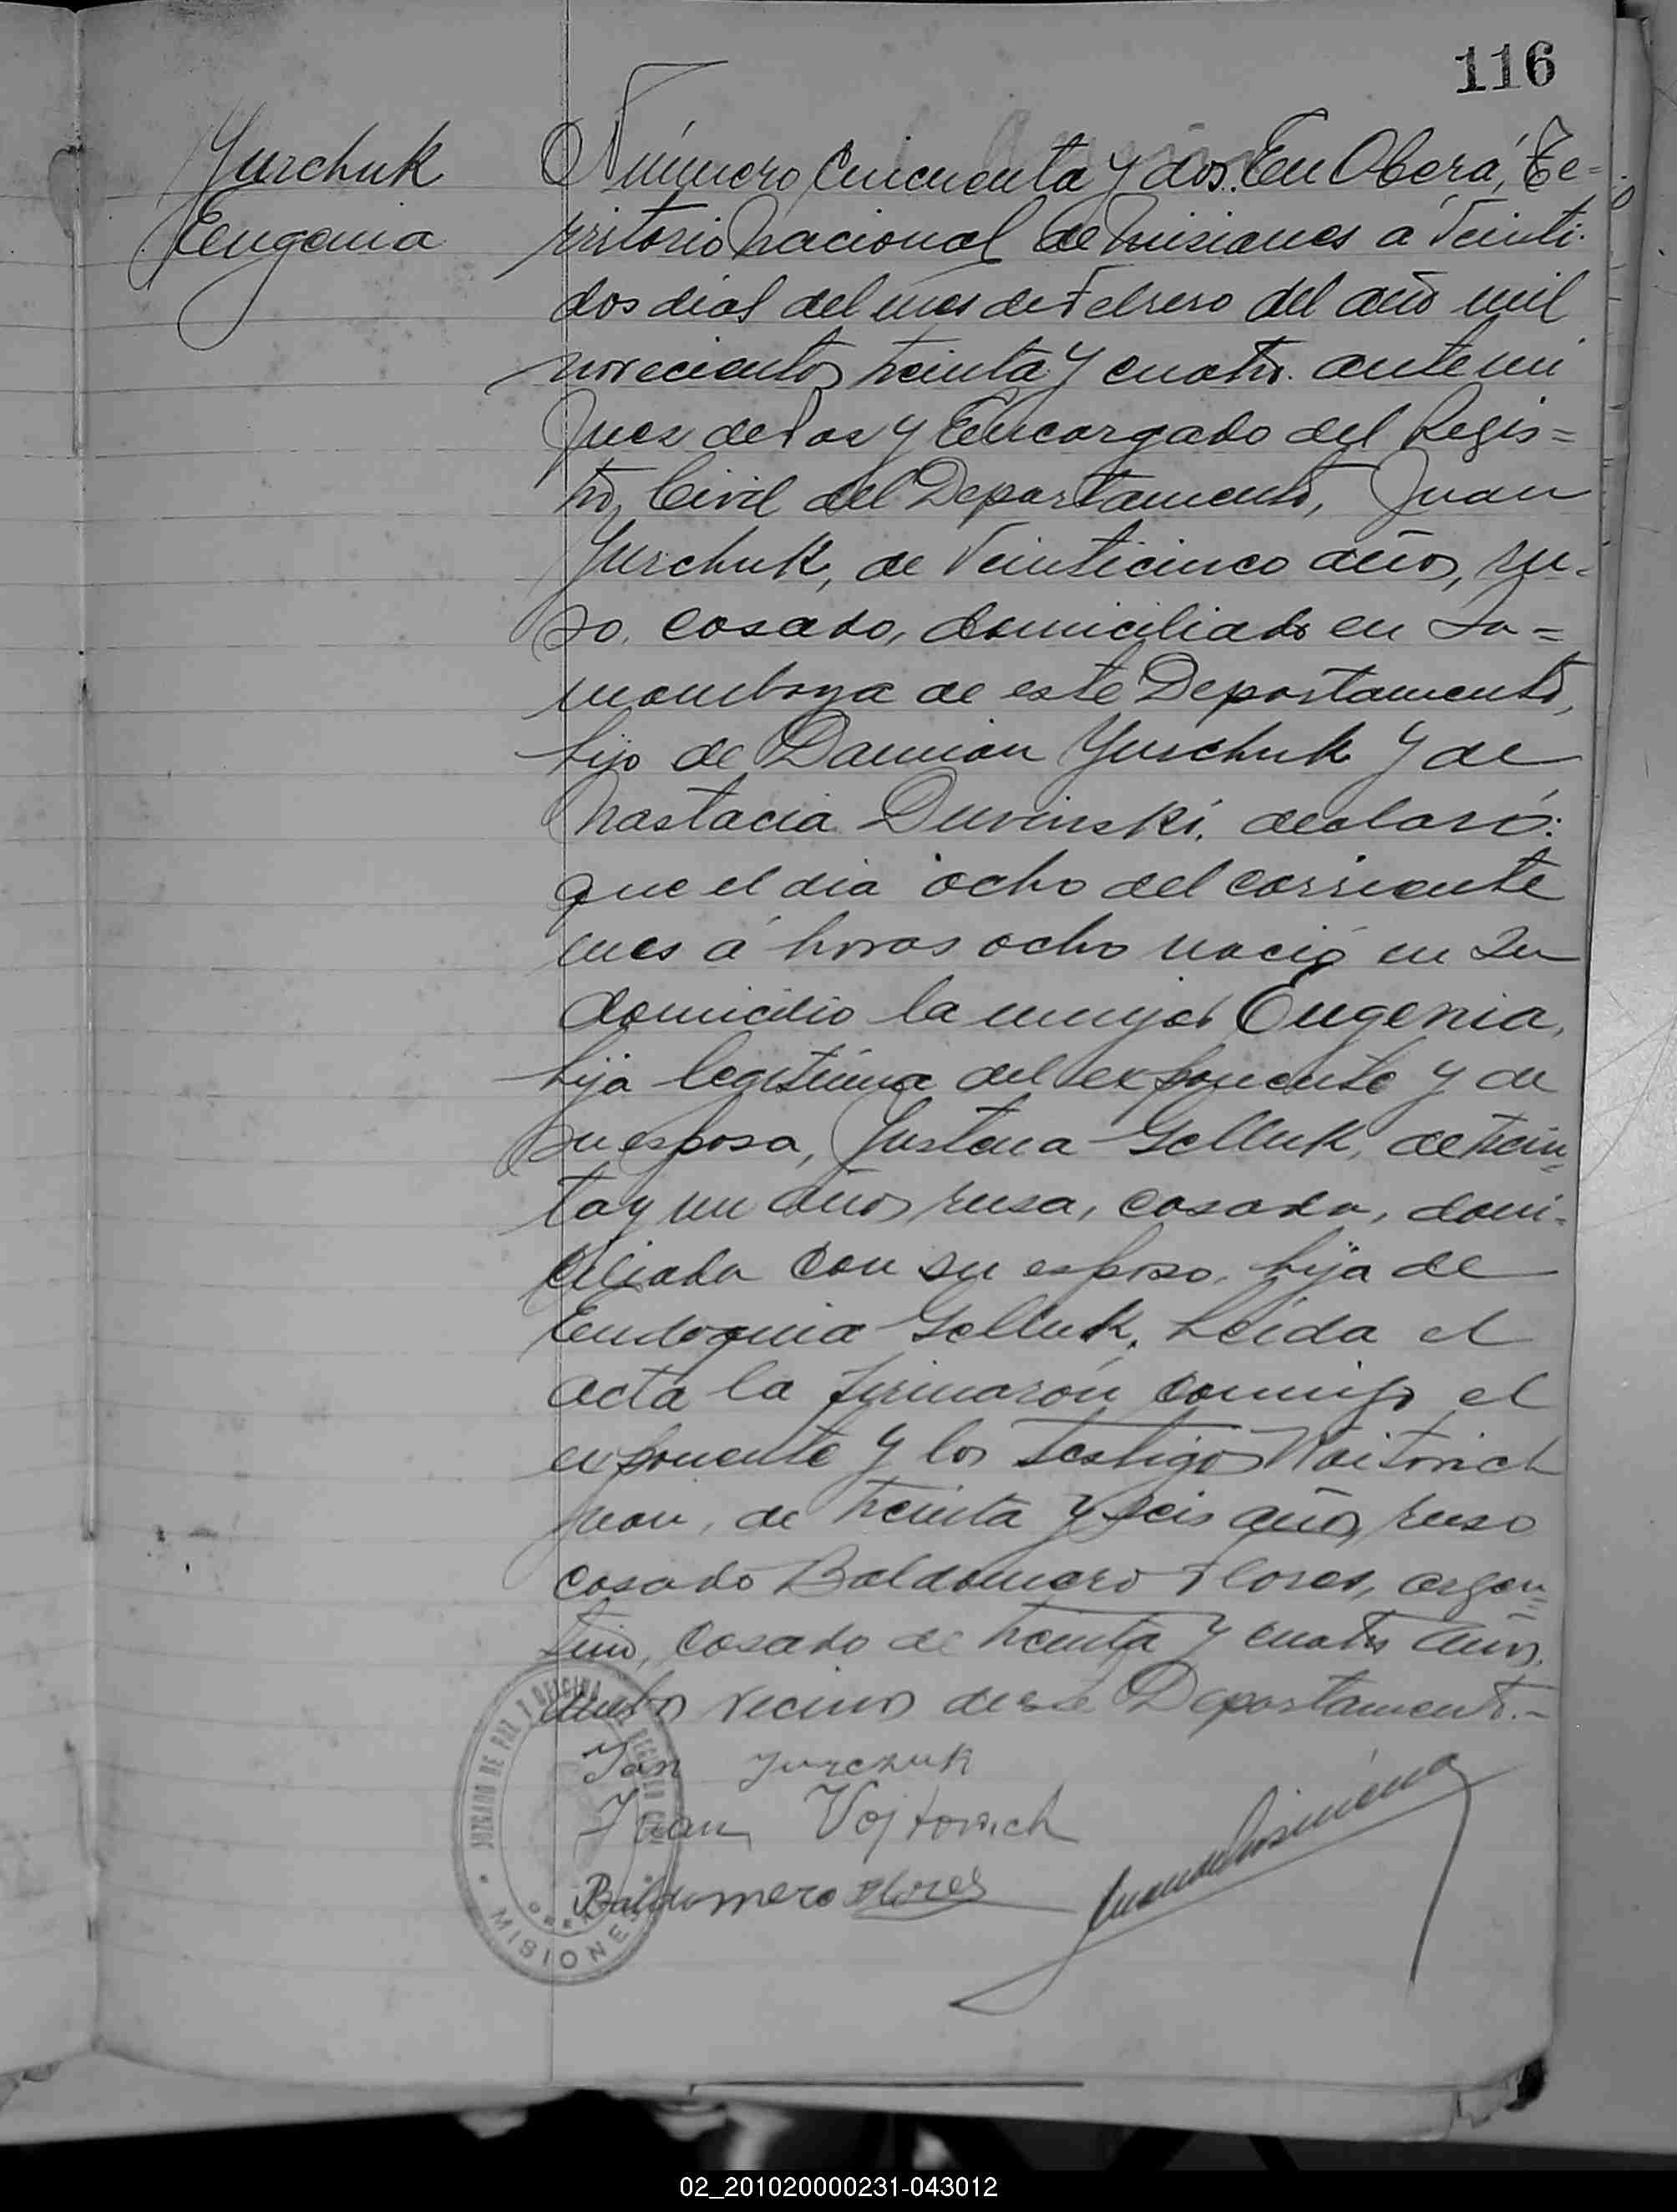 116
Yurchuk
Eugenia
Número Cincuenta y dos. En Oberá, Te=
rritorio Nacional de Misiones a Veinti-
dos dias del mes de Febrero del año mil
novecientos treinta y cuatro. ante mi
Juez de Paz y Encargado del Regis=
tro Civil del Departamento, Juan
Yurchuk, de Veinticinco años, ru-
so, casado, domiciliado en Sa=
mambaya de este Departamento,
hijo de Damian Yurchuk y de
Nastacia Duvinski, declaró:
que el dia ocho del corriente
mes á horas ocho nació en su
domicilio la mujer Eugenia,
hija legitima del exponente y de
su esposa, Justena Gelluk, de trein=
ta y un años rusa, casada, domi-
ciliada con su esposo, hija de
Eudoquia Gelluk. Leida el
acta la firmarón conmigo el
exponente y los testigos Woitovich
Juan, de treinta y seis años, ruso
casado Baldomero Flores, argen=
tino, casado de treinta y cuatro años,
ambos vecinos de este Departamento.-
Jan Jurczuk
Juan Vojtovich
Baldomero Flores
JUZGADO DE PAZ Y OFICINA DEL REGISTRO CIVIL
OBERÁ
MISIONES
02_201020000231-043012